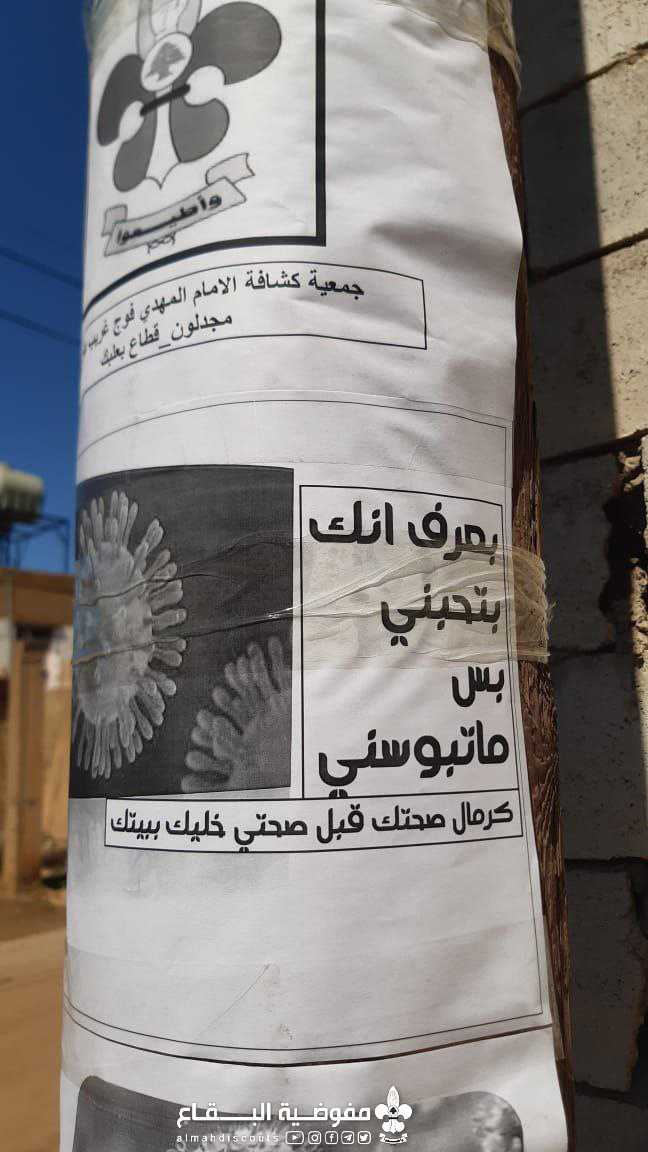 وأطيعوا
جمعية كشافة الامام المهدي فوج غريب
مجدلون_قطاع بعلبك
بعرف انك
بتحبني
بس
ماتبوسني
كرمال صحتك قبل صحتي خليك ببيتك
مفوضية البقاع
almahdiscouts